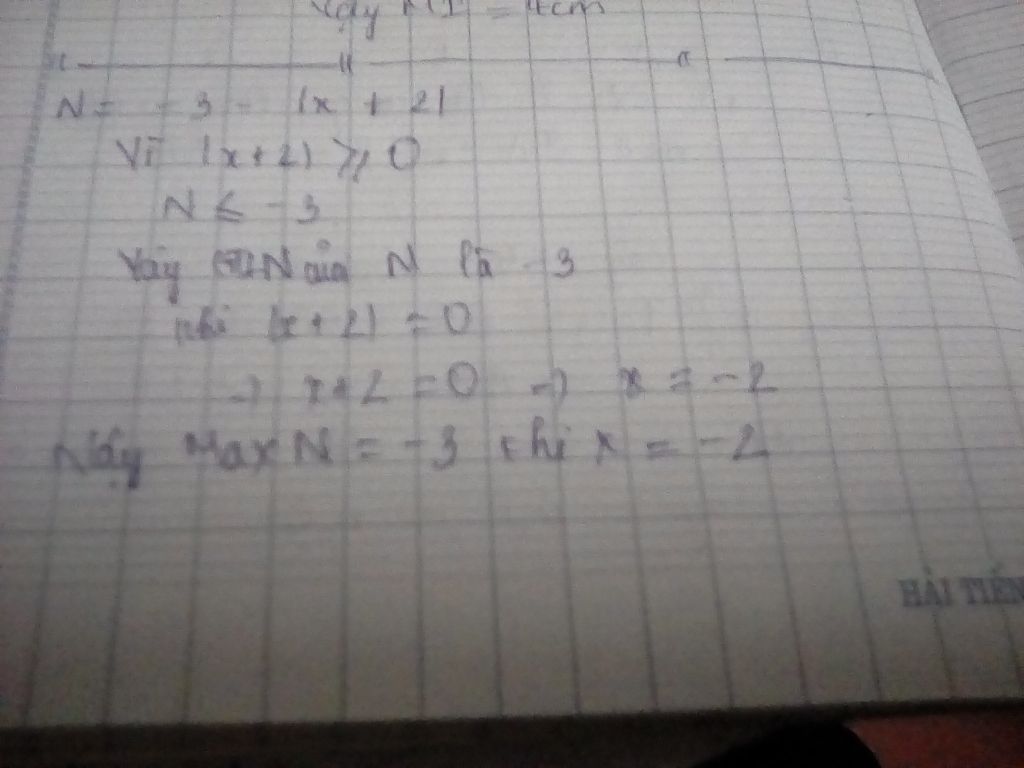 Vậy = 4cm
N = - 3 - |x + 2|
Vì |x + 2| ≥ 0
N ≤ - 3
Vậy GTLN của N là - 3
khi |x + 2| = 0
→ x + 2 = 0 → x = - 2
Vậy Max N = - 3 khi x = - 2
HẢI TIẾN